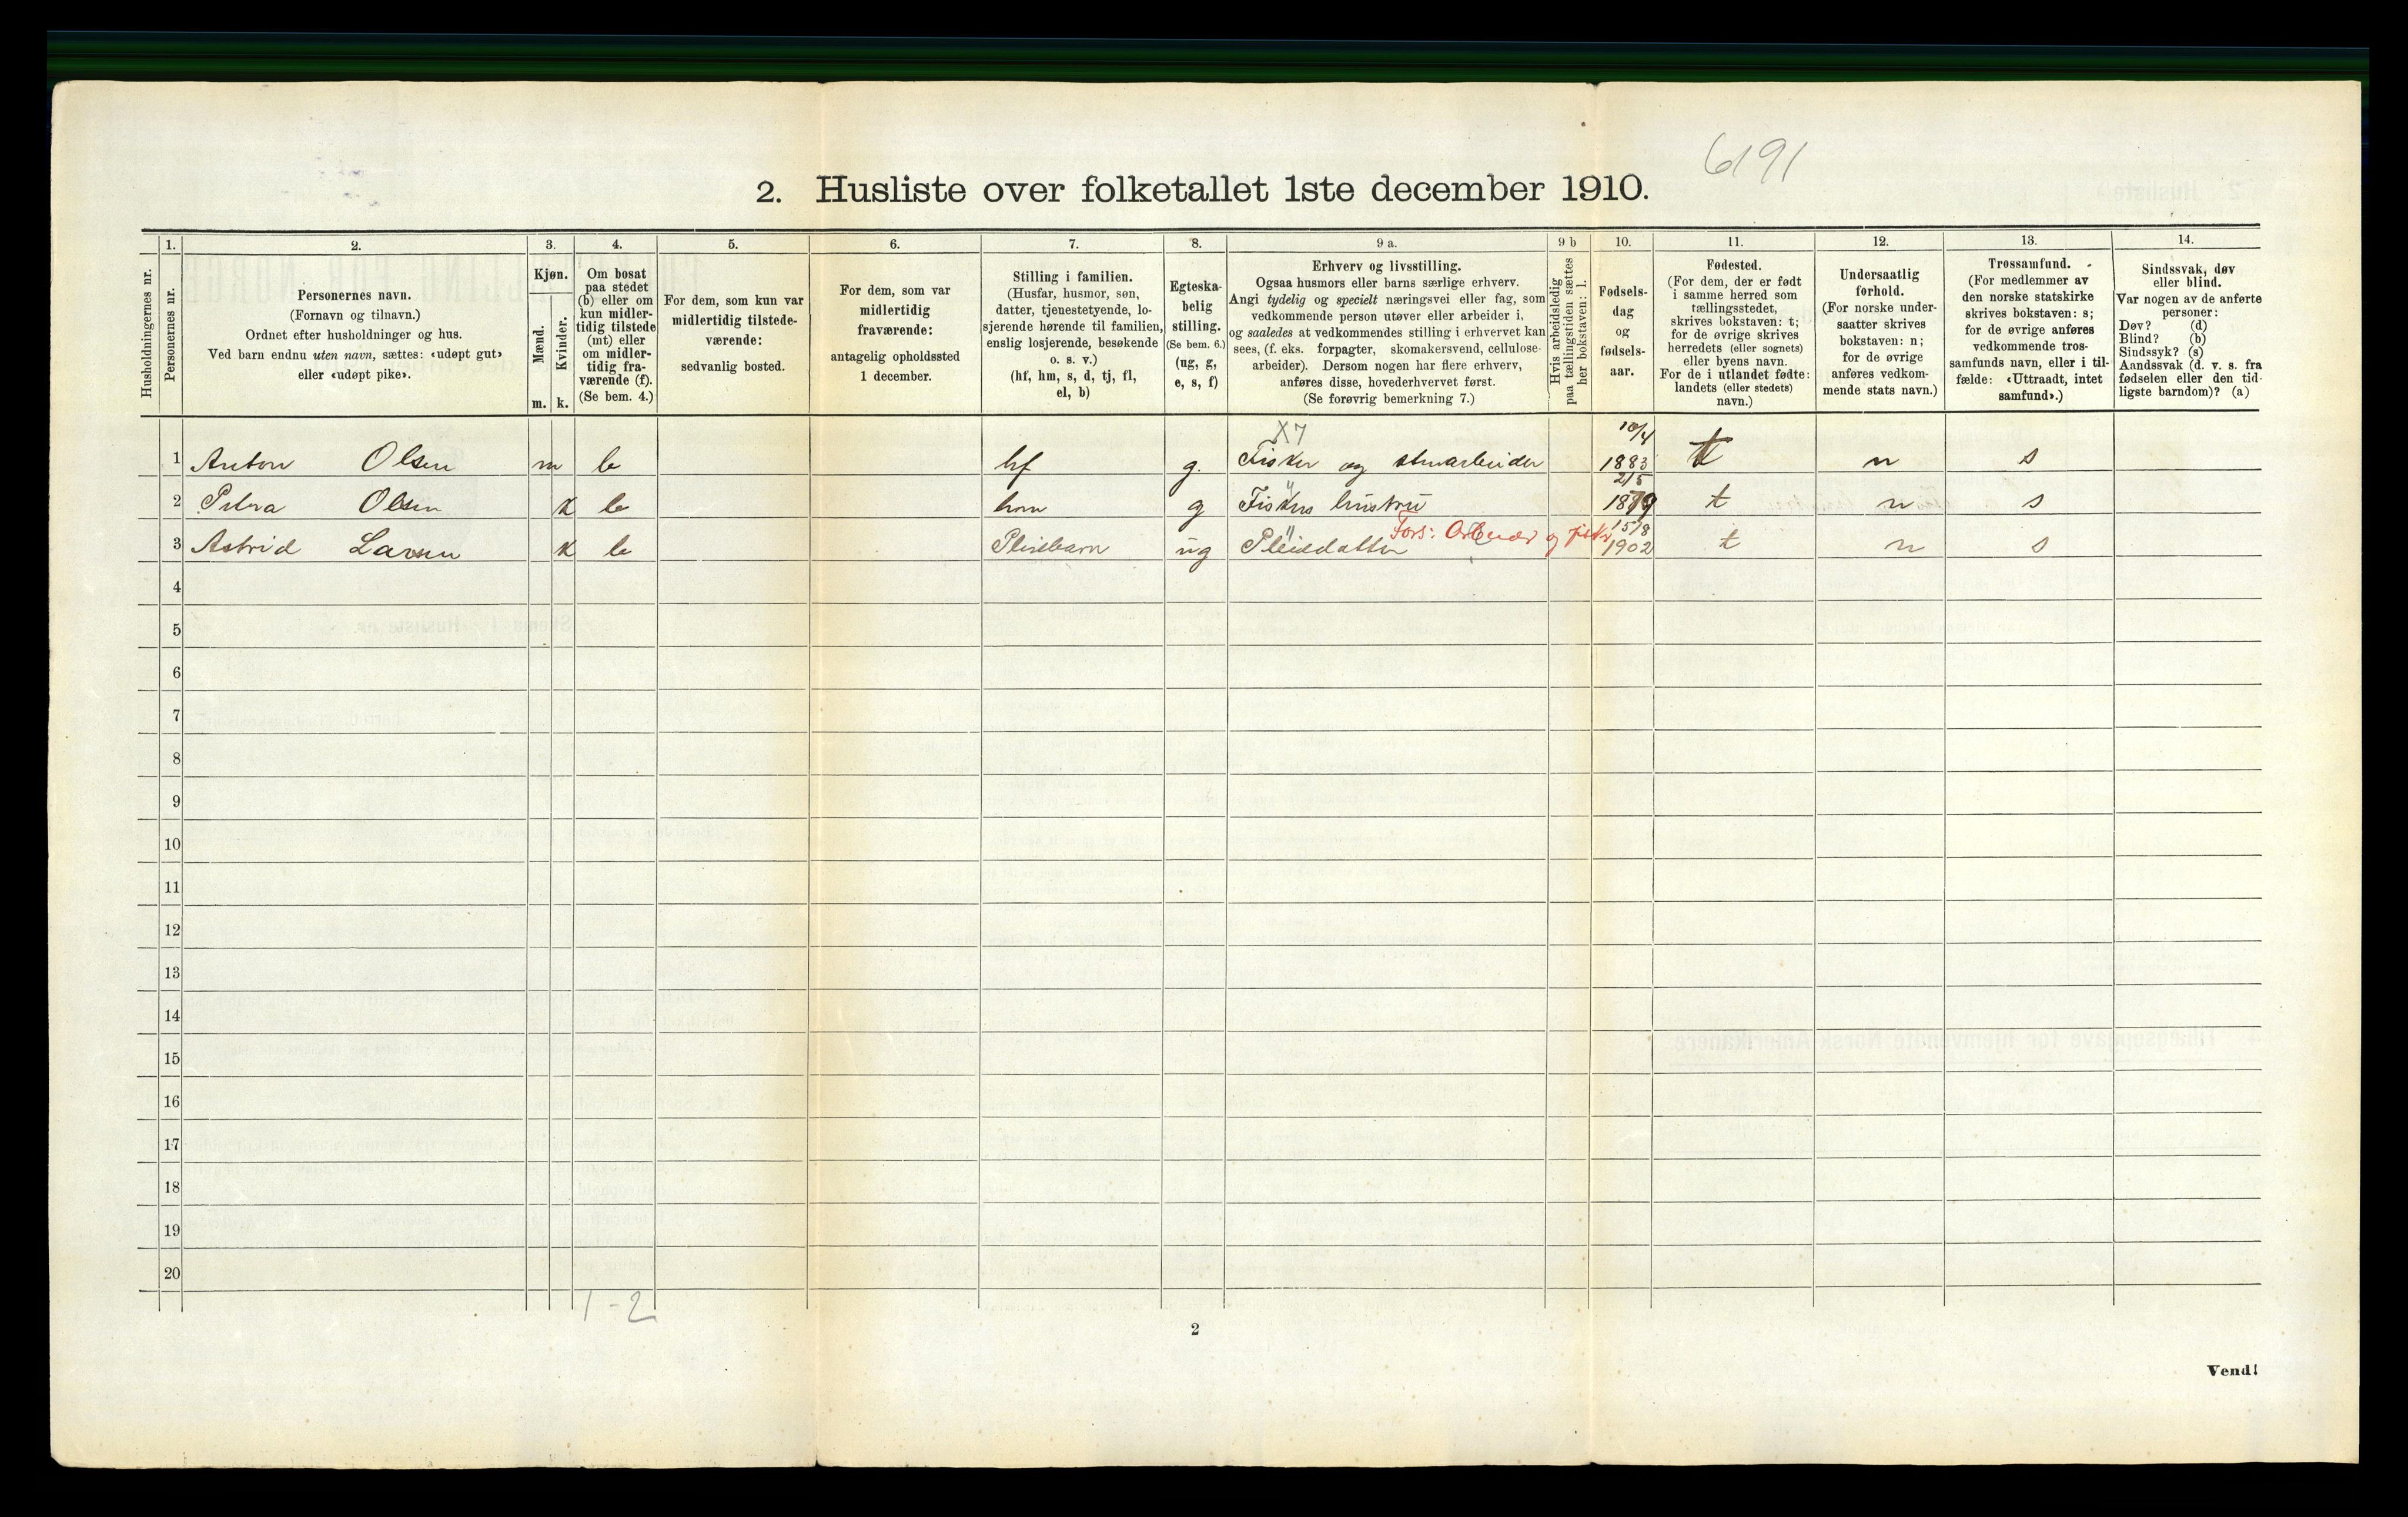 6191
2. Husliste over folketallet 1ste december 1910.
Husholdningernes nr.
1.
Personernes nr.
2.
Personernes navn.
(Fornavn og tilnavn.)
Ordnet efter husholdninger og hus.
Ved barn endnu uten navn, sættes: «udøpt gut»
eller «udøpt pike».
3.
Kjøn.
Mænd.
Kvinder.
m. k.
4.
Om bosat
paa stedet
(b) eller om
kun midler-
tidig tilstede
(mt) eller
om midler-
tidig fra-
værende (f).
(Se bem. 4.)
5.
For dem, som kun var
midlertidig tilstede-
værende:
sedvanlig bosted.
6.
For dem, som var
midlertidig
fraværende:
antagelig opholdssted
1 december.
7.
Stilling i familien.
(Husfar, husmor, søn,
datter, tjenestetyende, lo-
sjerende hørende til familien,
enslig losjerende, besøkende
o. s. v.)
(hf, hm, s, d, tj, fl,
el, b)
8.
Egteska-
belig
stilling.
(Se bem. 6.)
(ug, g,
e, s, f)
9 a.
Erhverv og livsstilling.
Ogsaa husmors eller barns særlige erhverv.
Angi tydelig og specielt næringsvei eller fag, som
vedkommende person utøver eller arbeider i,
og saaledes at vedkommendes stilling i erhvervet kan
sees, (f. eks. forpagter, skomakersvend, cellulose-
arbeider). Dersom nogen har flere erhverv,
anføres disse, hovederhvervet først.
(Se forøvrig bemerkning 7.)
9 b
Hvis arbeidsledig
paa tællingstiden sættes
her bokstaven: l.
10.
Fødsels-
dag
og
fødsels-
aar.
11.
Fødested.
(For dem, der er født
i samme herred som
tællingsstedet,
skrives bokstaven: t;
for de øvrige skrives
herredets (eller sognets)
eller byens navn.
For de i utlandet fødte:
landets (eller stedets)
navn.)
12.
Undersaatlig
forhold.
(For norske under-
saatter skrives
bokstaven: n;
for de øvrige
anføres vedkom-
mende stats navn.)
13.
Trossamfund.
(For medlemmer av
den norske statskirke
skrives bokstaven: s;
for de øvrige anføres
vedkommende tros-
samfunds navn, eller i til-
fælde: «Uttraadt, intet
samfund».)
14.
Sindssvak, døv
eller blind.
Var nogen av de anførte
personer:
Døv? (d)
Blind? (b)
Sindssyk? (s)
Aandssvak (d. v. s. fra
fødselen eller den tid-
ligste barndom)? (a)
X7 10/4
1 Anton Olsen m b hf g. Fisker og 1883 t n s
2/5
2 Petra Olsen k b hm g Fiskers hustru 1879 t n s
Fors: Arbeider og fisker 15/8
3 Astrid Larsen k b Pleiebarn ug Pleiedatter 1902 t n s
4
5
6
7
8
9
10
11
12
13
14
15
16
17
18
19
20
1 - 2
2
Vend!